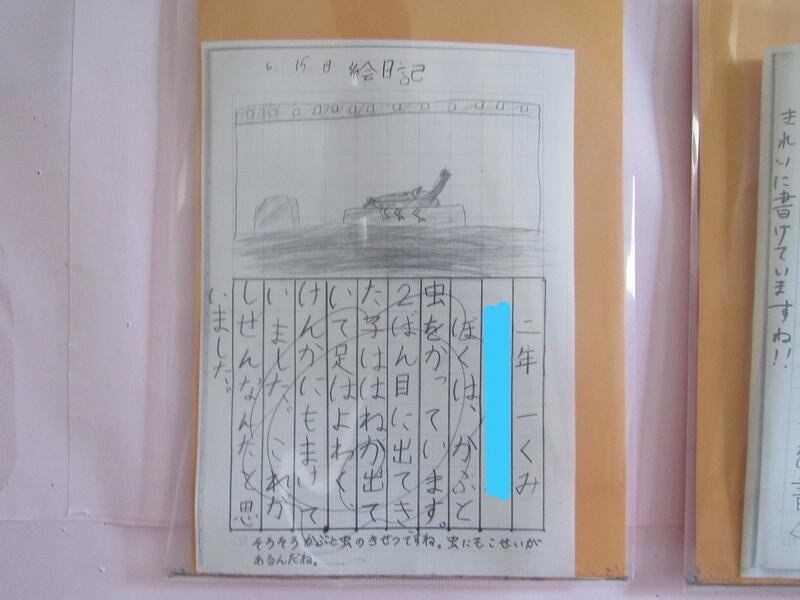 6 15日 絵日記
二年 一くみ
ぼくは、かぶと
虫をかっています。
2ばん目に出てき
た子ははねが出て
いて足はよわく、
けんかにもまけて
いました。これが
しぜんなんだと思
いました。
そろそろかぶと虫のきせつですね。虫にもこせいが
あるんだね。
きれいに書けていますね!!